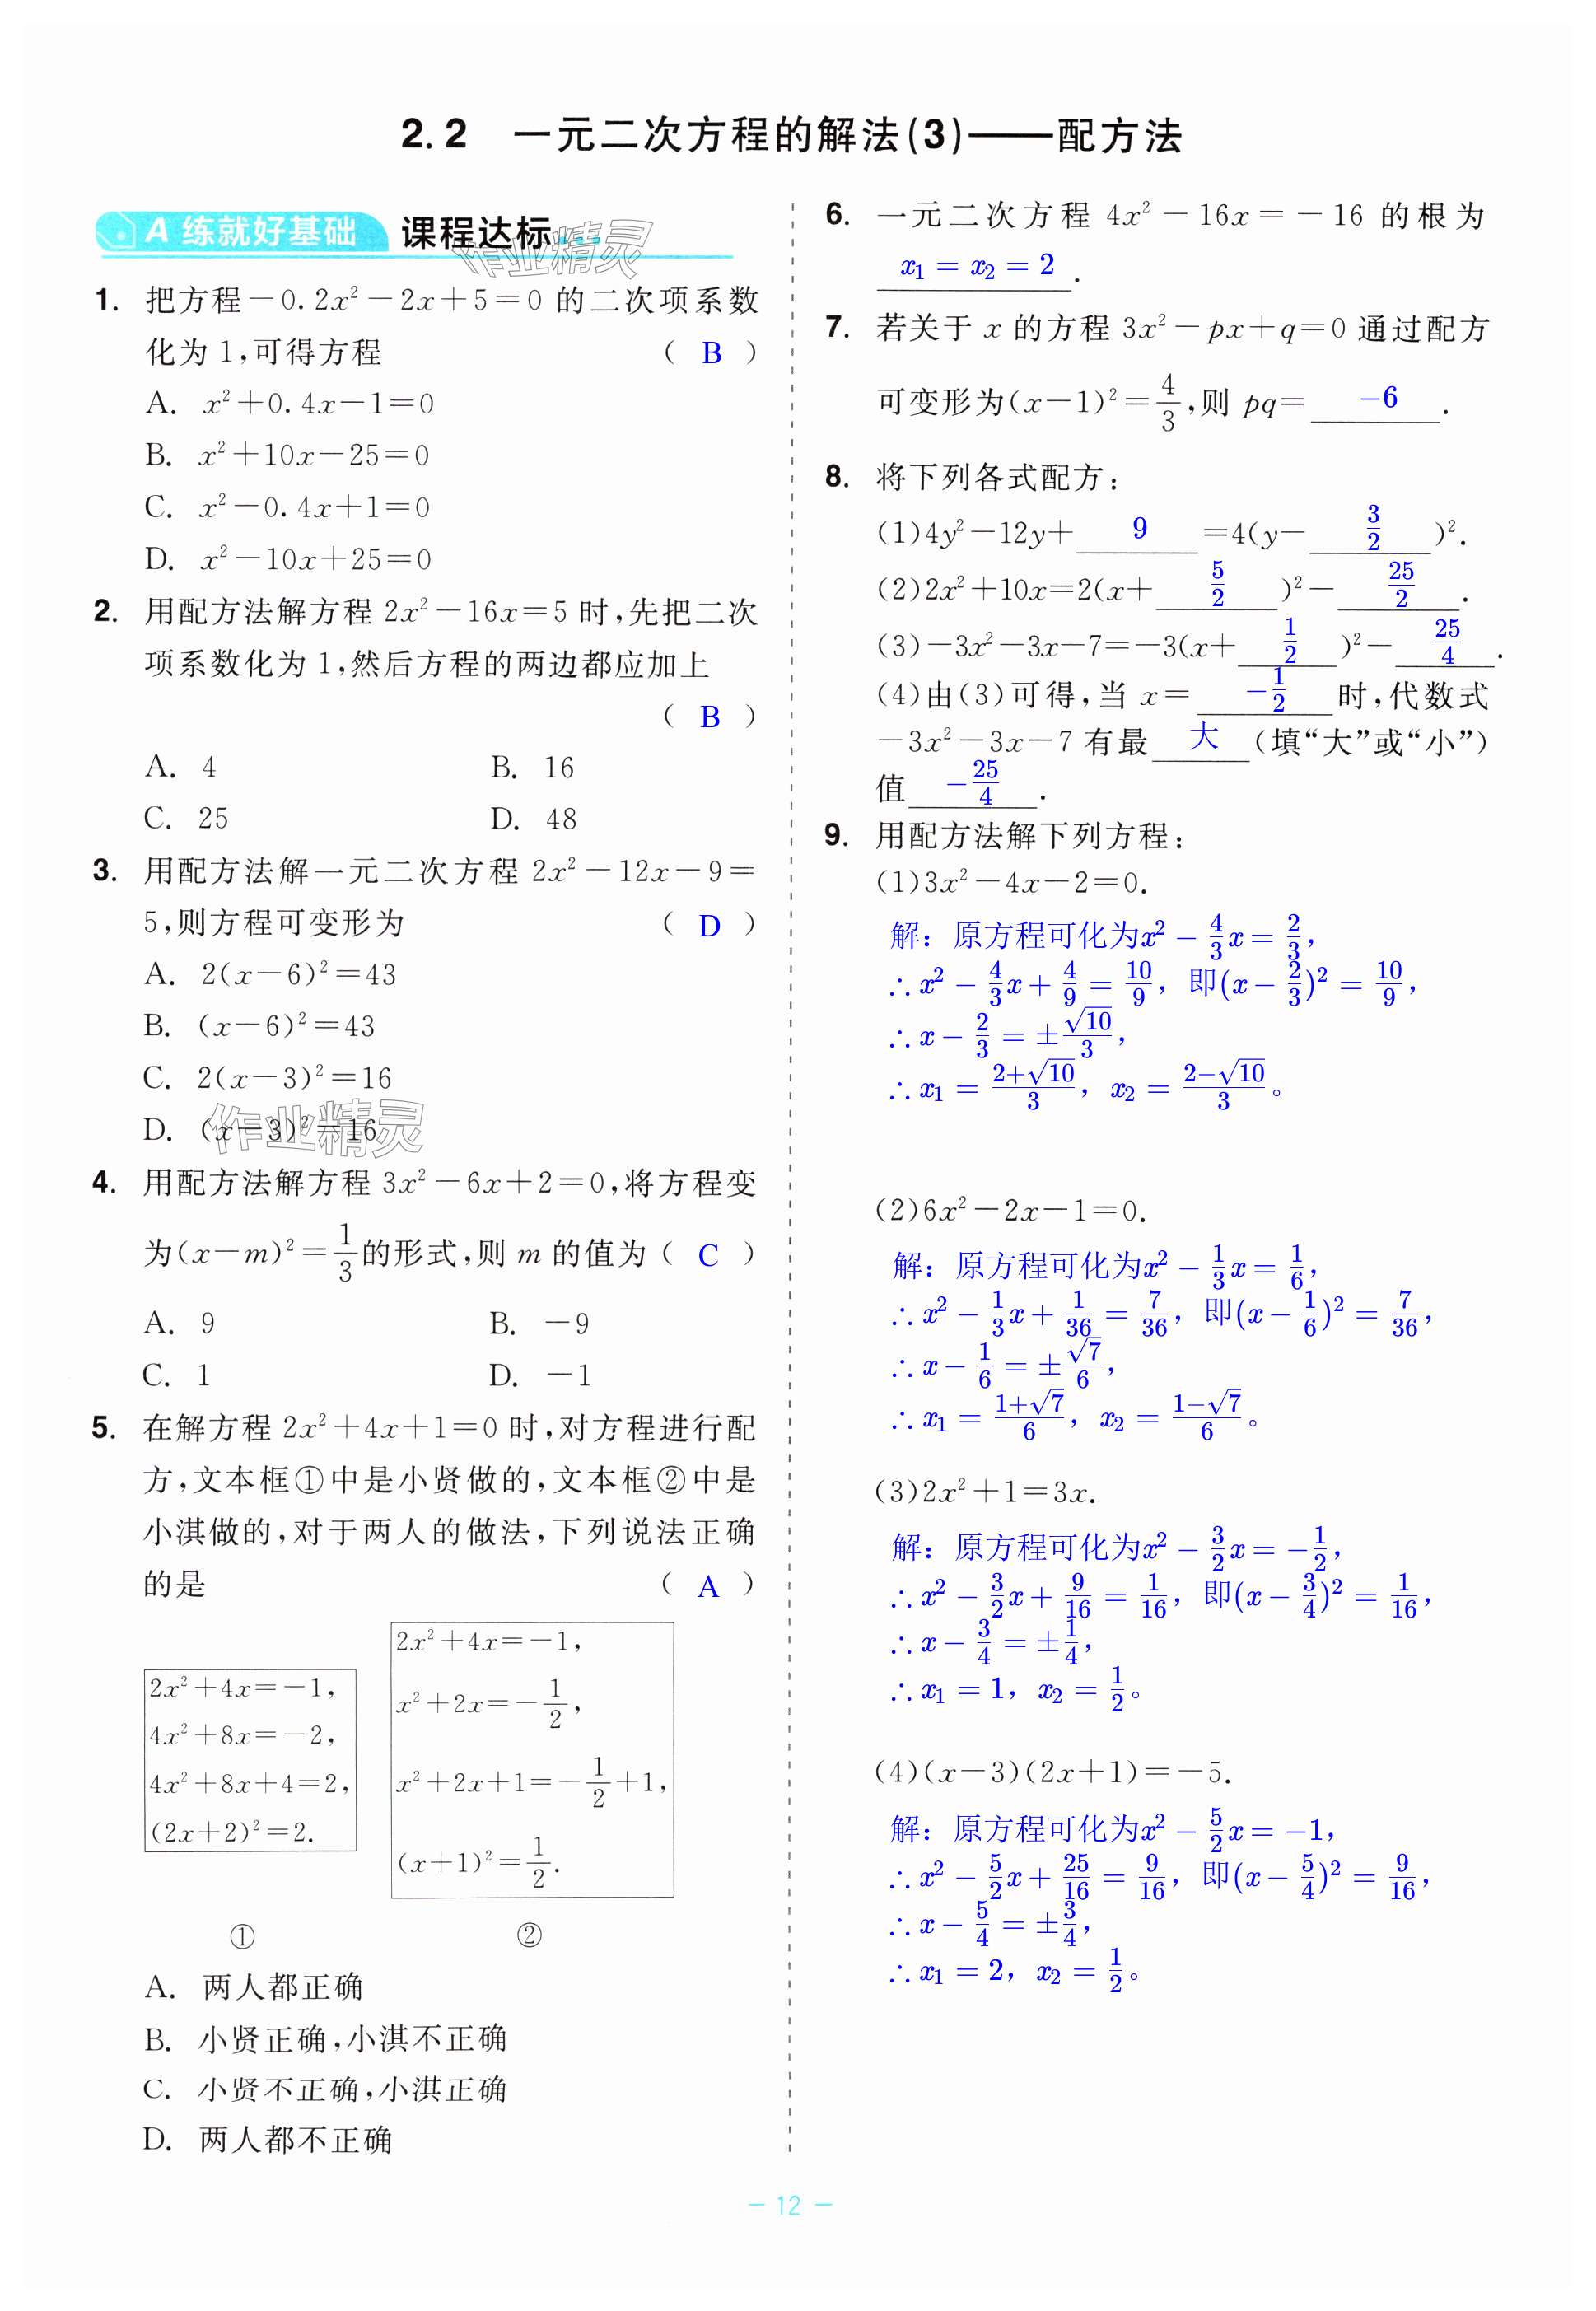 2.2 一元二次方程的解法(3)——配方法
A 练就好基础 课程达标
作业精灵
1. 把方程-0.2x²-2x+5=0 的二次项系数
化为 1,可得方程 ( B )
A. x²+0.4x-1=0
B. x²+10x-25=0
C. x²-0.4x+1=0
D. x²-10x+25=0
2. 用配方法解方程 2x²-16x=5 时,先把二次
项系数化为 1,然后方程的两边都应加上
( B )
A. 4 B. 16
C. 25 D. 48
3. 用配方法解一元二次方程 2x²-12x-9=
5,则方程可变形为 ( D )
A. 2(x-6)²=43
B. (x-6)²=43
C. 2(x-3)²=16
D. (x-3)²=16
作业精灵
4. 用配方法解方程 3x²-6x+2=0,将方程变
为(x-m)²=1/3的形式,则 m 的值为 ( C )
A. 9 B. -9
C. 1 D. -1
5. 在解方程 2x²+4x+1=0 时,对方程进行配
方,文本框①中是小贤做的,文本框②中是
小淇做的,对于两人的做法,下列说法正确
的是 ( A )
2x²+4x=-1,
4x²+8x=-2,
4x²+8x+4=2,
(2x+2)²=2.
①
2x²+4x=-1,
x²+2x=-1/2,
x²+2x+1=-1/2+1,
(x+1)²=1/2.
②
A. 两人都正确
B. 小贤正确,小淇不正确
C. 小贤不正确,小淇正确
D. 两人都不正确
6. 一元二次方程 4x²-16x=-16 的根为
x₁=x₂=2.
7. 若关于 x 的方程 3x²-px+q=0 通过配方
可变形为(x-1)²=4/3,则 pq= -6 .
8. 将下列各式配方:
(1)4y²-12y+ 9 =4(y- 3/2 )².
(2)2x²+10x=2(x+ 5/2 )²- 25/2 .
(3)-3x²-3x-7=-3(x+ 1/2 )²- 25/4 .
(4)由(3)可得,当 x= -1/2 时,代数式
-3x²-3x-7 有最 大 (填“大”或“小”)
值 -25/4 .
9. 用配方法解下列方程:
(1)3x²-4x-2=0.
解：原方程可化为x²-4/3x=2/3,
∴x²-4/3x+4/9=10/9，即(x-2/3)²=10/9,
∴x-2/3=±√10/3,
∴x₁=(2+√10)/3，x₂=(2-√10)/3。
(2)6x²-2x-1=0.
解：原方程可化为x²-1/3x=1/6,
∴x²-1/3x+1/36=7/36，即(x-1/6)²=7/36,
∴x-1/6=±√7/6,
∴x₁=(1+√7)/6，x₂=(1-√7)/6。
(3)2x²+1=3x.
解：原方程可化为x²-3/2x=-1/2,
∴x²-3/2x+9/16=1/16，即(x-3/4)²=1/16,
∴x-3/4=±1/4,
∴x₁=1，x₂=1/2。
(4)(x-3)(2x+1)=-5.
解：原方程可化为x²-5/2x=-1,
∴x²-5/2x+25/16=9/16，即(x-5/4)²=9/16,
∴x-5/4=±3/4,
∴x₁=2，x₂=1/2。
— 12 —